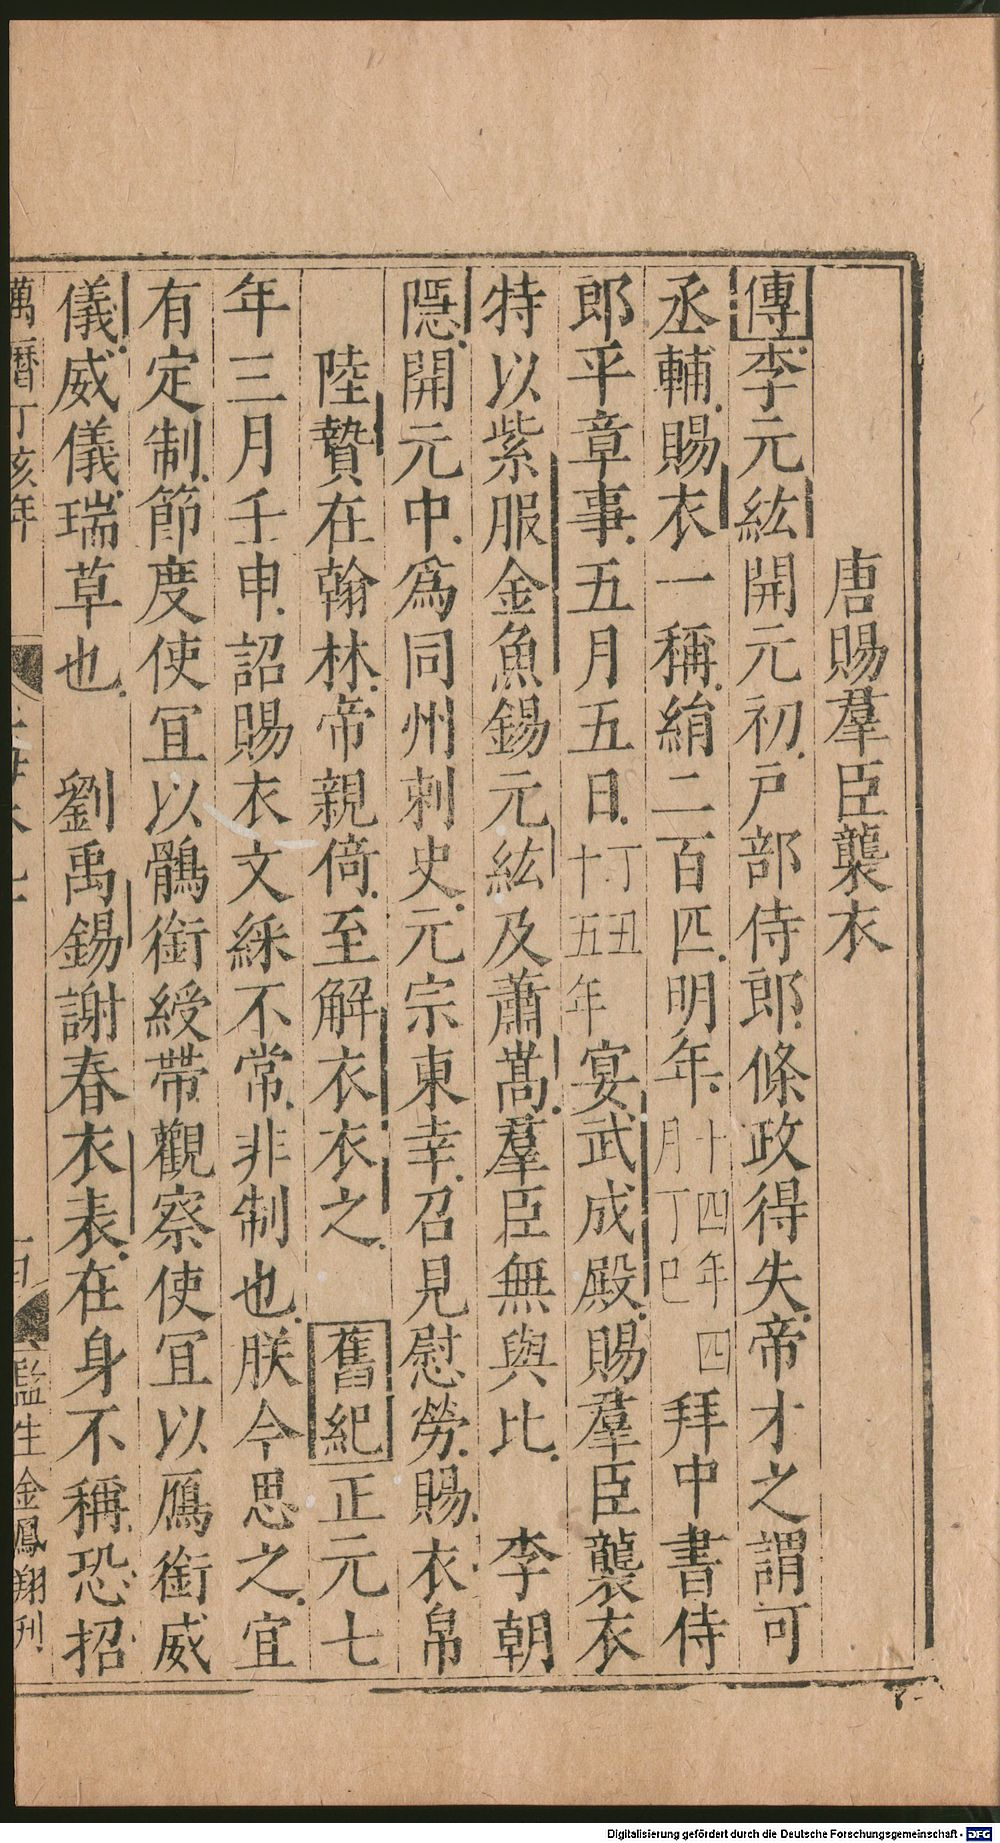 唐賜羣臣襲衣
傳李元紘開元初戶部侍郎條政得失帝才之謂可
丞輔賜衣一稱絹二百匹明年十四年四月丁巳拜中書侍
郎平章事五月五日丁丑十五年宴武成殿賜羣臣襲衣
特以紫服金魚錫元紘及蕭嵩羣臣無與比 李朝
隱開元中爲同州刺史元宗東幸召見慰勞賜衣帛
陸贄在翰林帝親倚至解衣衣之 舊紀正元七
年三月壬申詔賜衣文綵不常非制也朕今思之宜
有定制節度使冝以鶻銜綬帶觀察使冝以鴈銜威
儀威儀瑞草也 劉禹錫謝春衣表在身不稱恐招
萬曆丁亥年
監生金鳳翔刊
Digitalisierung gefördert durch die Deutsche Forschungsgemeinschaft - DFG